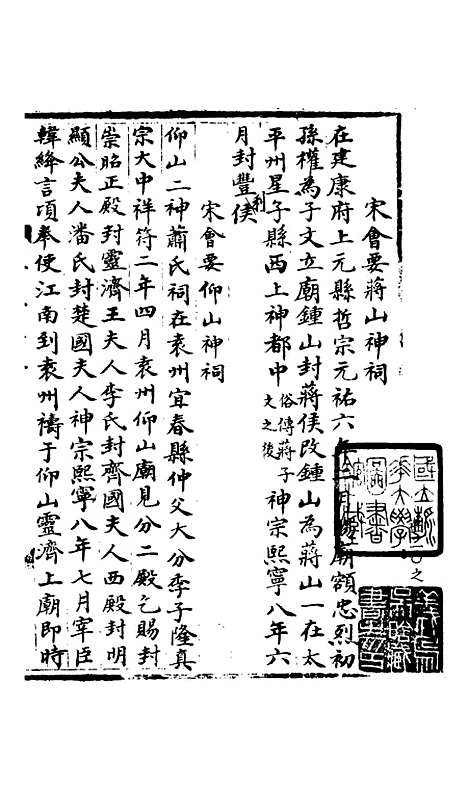 宋會要蔣山神祠
在建康府上元縣哲宗元祐六年二月賜廟額忠烈初
孫權為子文立廟鍾山封蔣侯改鍾山為蔣山一在太
平州星子縣西上神都中俗傳蔣子文之後神宗熙寧八年六
月封豐利侯
宋會要仰山神祠
仰山二神蕭氏祠在袁州宜春縣仲父大分季子隆真
宗大中祥符二年四月袁州仰山廟見分二殿乞賜封
崇昭正殿封靈濟王夫人李氏封齊國夫人西殿封明
顯公夫人潘氏封楚國夫人神宗熙寧八年七月宰臣
韓絳言項奉使江南到袁州禱于仰山靈濟上廟即時